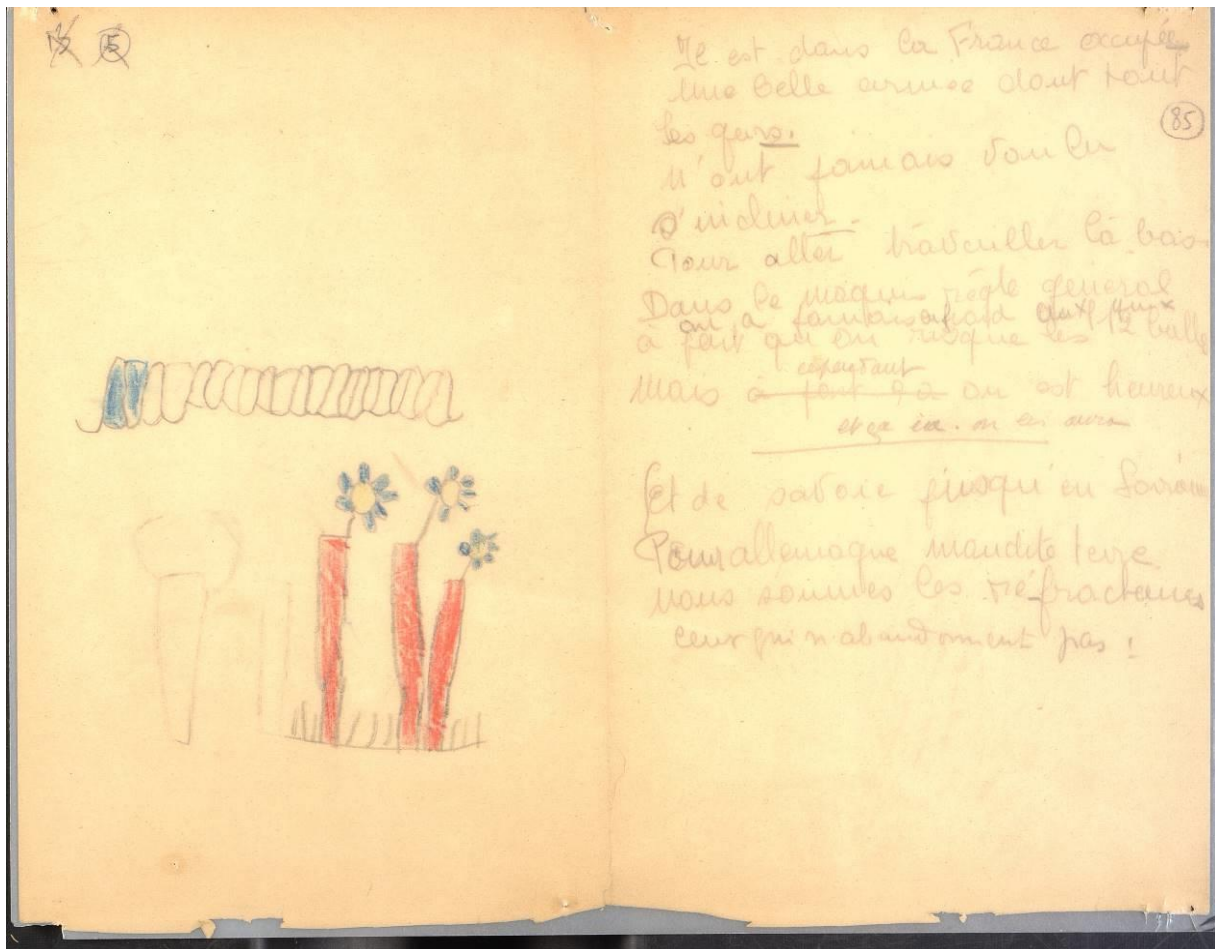 5
Il est dans la France occupée
Une belle armée dont tout
les gars.
N'ont jamais voulu
s'incliner.
Pour aller travailler là bas
85
Dans le maquis règle général
on a jamais froid aux
à part qu'on risque les 12 balle
cependant
mais à part ça on est heureux
et ça ira. on les aura
Et de savoie jusqu'en
Pour allemagne maudite terre
nous sommes les réfractaires
ceux qui n'abandonnent pas !